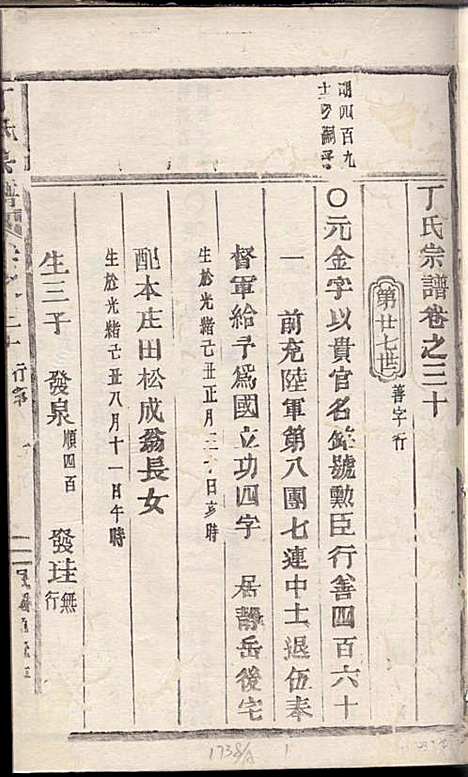 丁氏宗譜卷之三十
第廿七世
善字行
四百九
○元金字以貴官名號勲臣行善四百六十
一 前充陸軍第八團七連中士退伍奉
督軍給予爲國立功四字 居靜岳後宅
生於光緒己丑正月三十日亥時
配本庄田松成翁長女
生於光緒己丑八月十一日午時
生三子 發泉 順四百 發珪 無行
1738/A 1